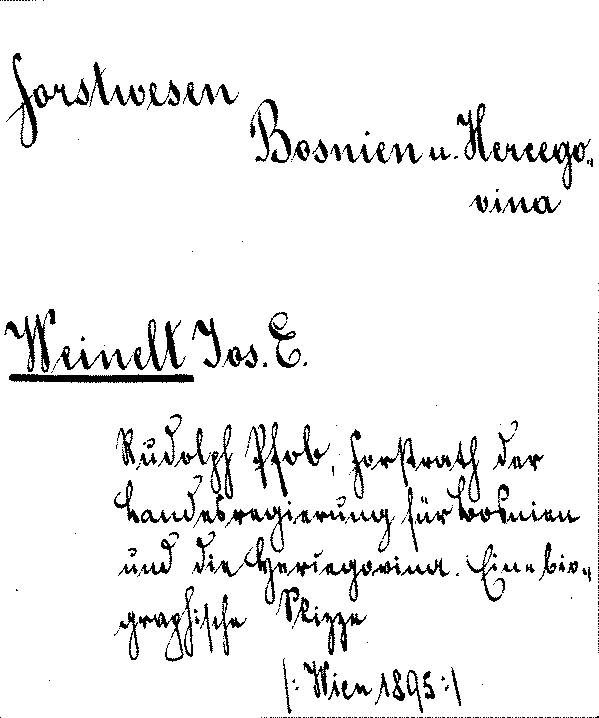 Forstwesen
Bosnien u. Hercego„
vina
Weinelt Jos. E.
Rudolph Pfob, Forstrath der
Landesregierung für Bosnien
und die Hercegovina. Eine bio„
graphische Skizze
/: Wien 1895 :/